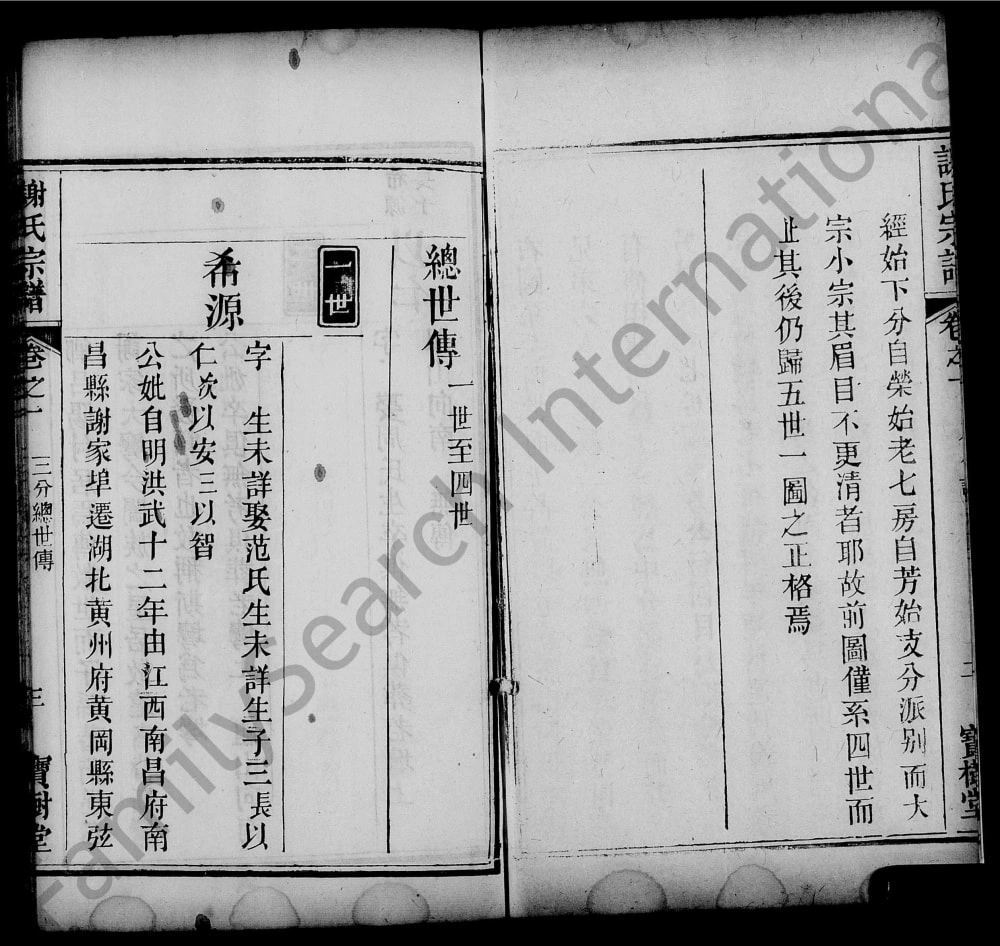 謝氏宗譜
卷之一
寶樹堂
經始下分自榮始老七房自芳始支分派別而大
宗小宗其眉目不更清者耶故前圖僅系四世而
止其後仍歸五世一圖之正格焉
總世傳 一世至四世
一世
希源
字 生未詳娶范氏生未詳生子三長以
仁次以安三以智
公妣自明洪武十二年由江西南昌府南
昌縣謝家埠遷湖北黃州府黃岡縣東弦
謝氏宗譜
卷之一
三分總世傳
三
寶樹堂
FamilySearch International